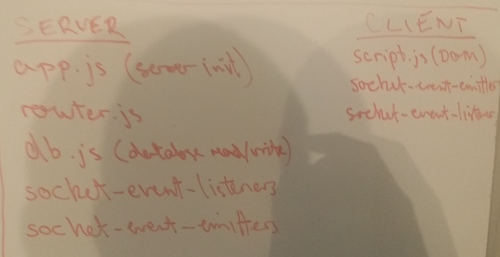 SERVER
app.js (server init)
router.js
db.js (database read/write)
socket-event-listeners
socket-event-emitters
CLIENT
script.js (DOM)
socket-event-emitter
socket-event-listener